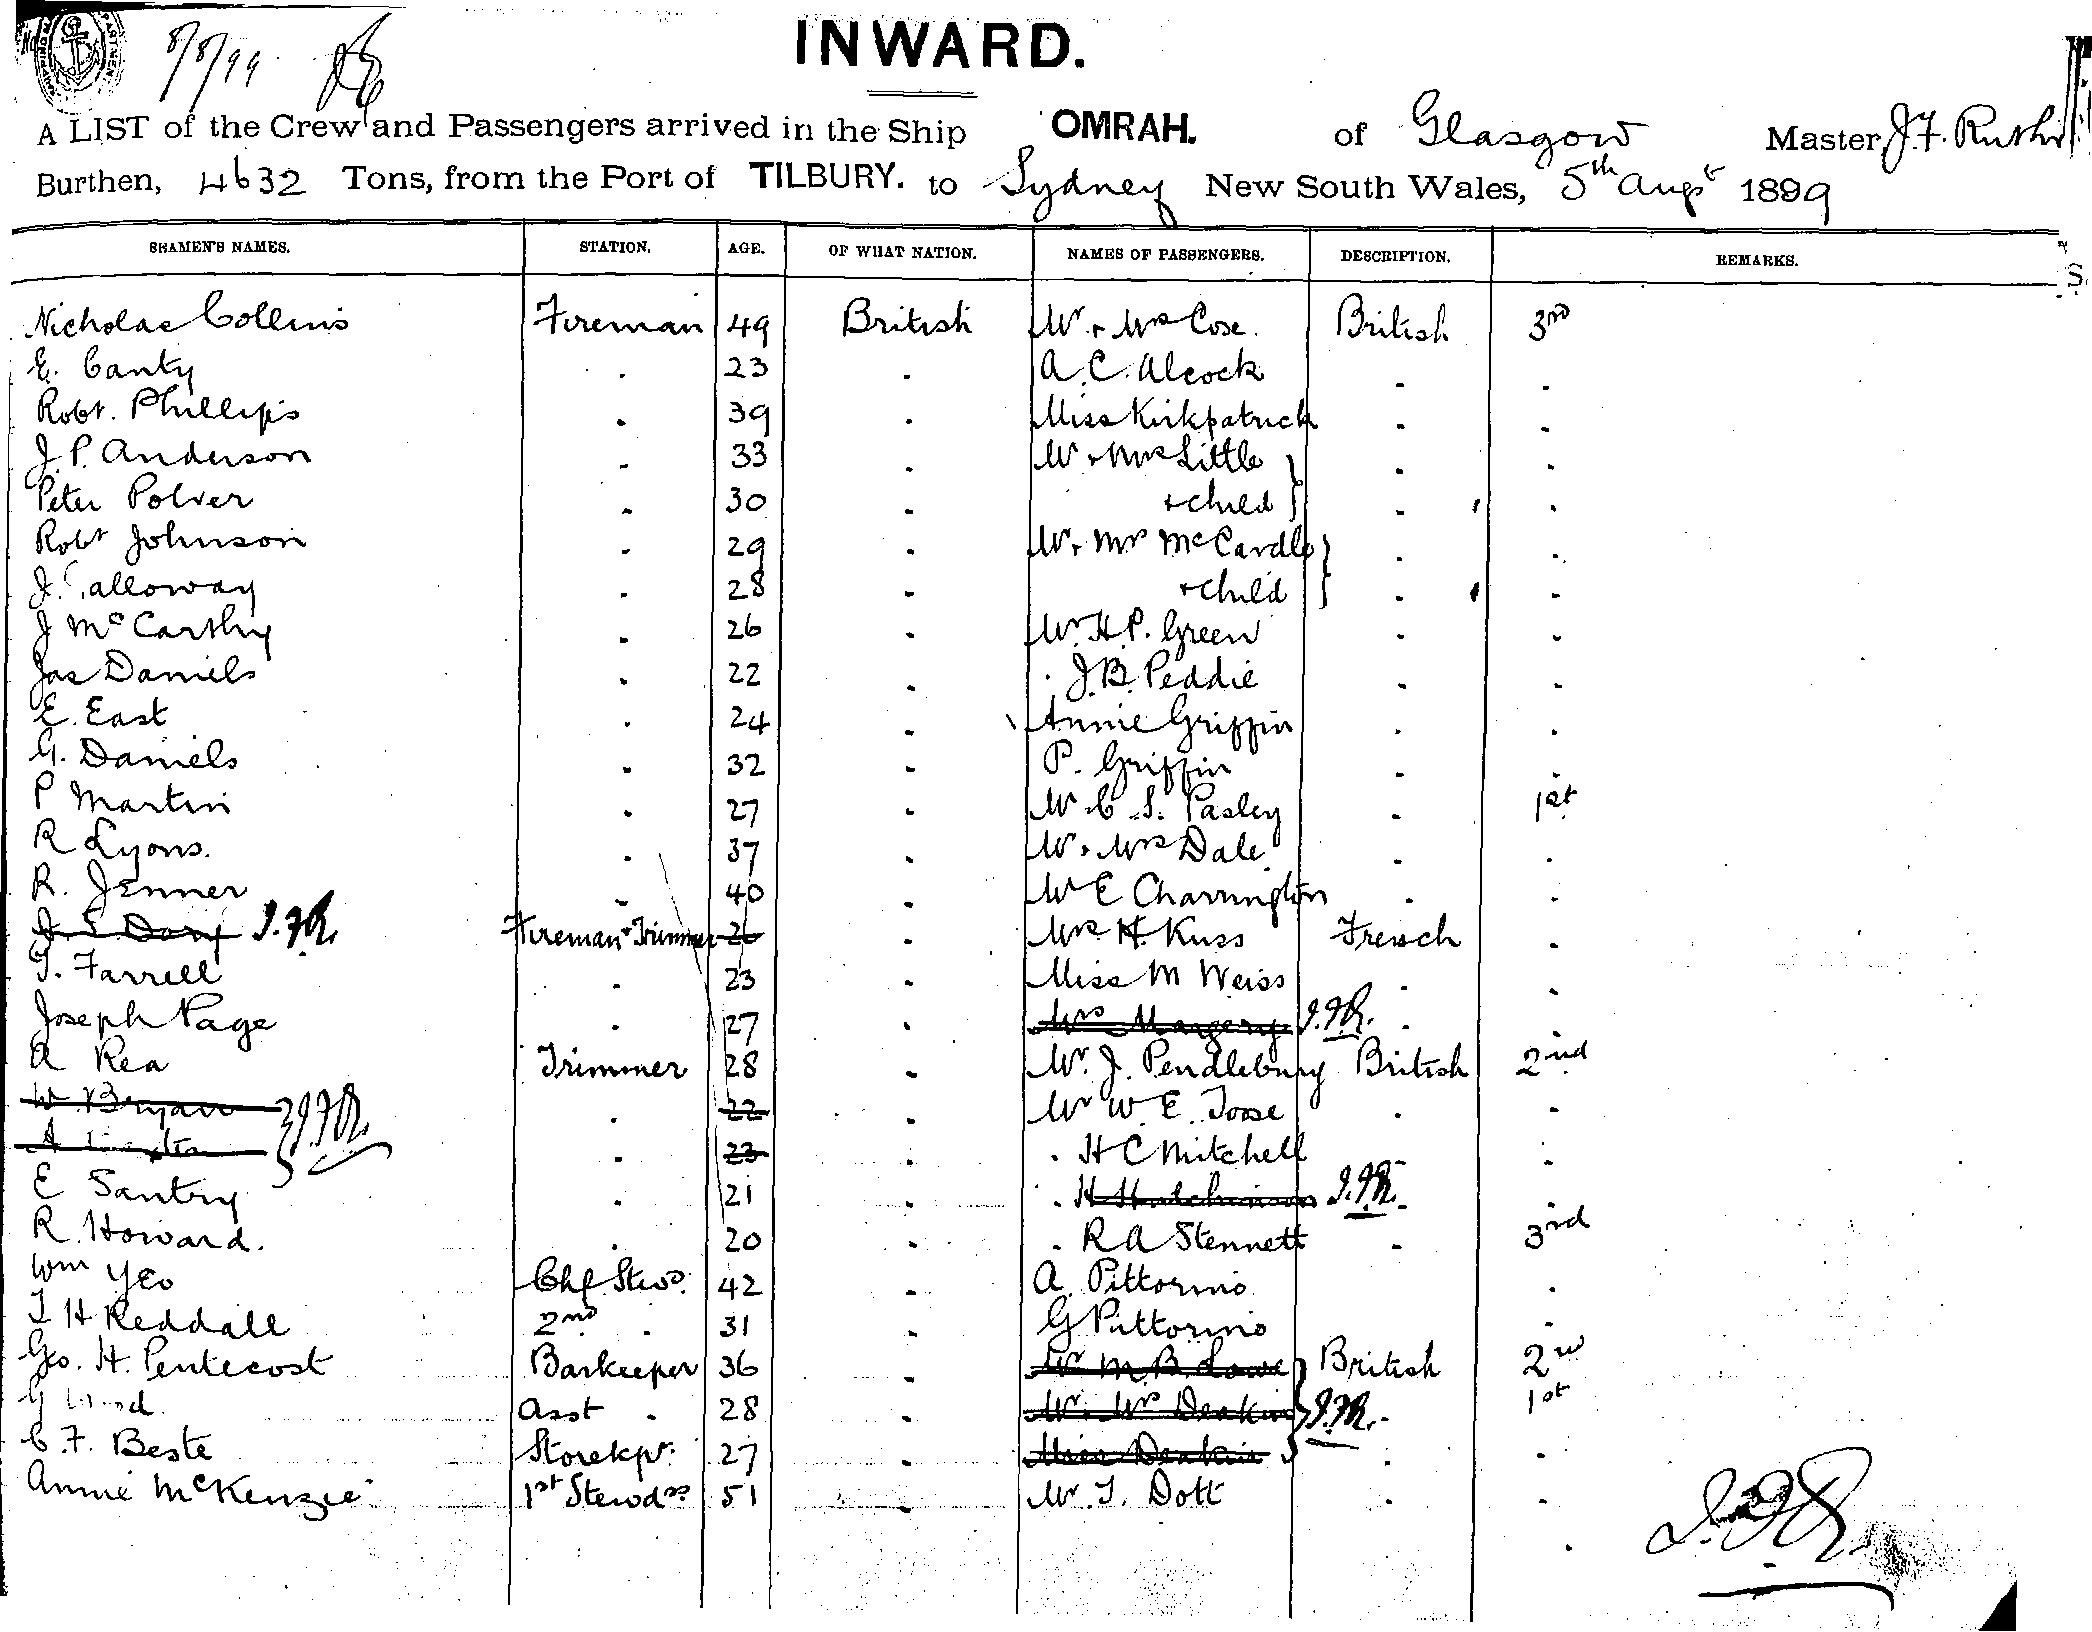 8/8/99
INWARD.
A LIST of the Crew and Passengers arrived in the Ship OMRAH. of Glasgow Master, J.F. Ruth
Burthen, 4632 Tons, from the Port of TILBURY. to Sydney New South Wales, 5th Augst 1899
SEAMEN'S NAMES. STATION. AGE. OF WHAT NATION. NAMES OF PASSENGERS. DESCRIPTION. REMARKS.
Nicholas Collins Fireman 49 British Mr + Mrs Cose. British 3rd
E. Canty . 23 . A. C. Alcock . .
Robt. Phillips . 39 . Miss Kirkpatrick . .
J. P. Anderson . 33 . Mr + Mrs Little . .
Peter Polver . 30 . + child . .
Robt Johnson . 29 . Mr + Mrs McCardle . .
J. alloway . 28 . + child . .
J McCarthy . 26 . Mr. H. P. Green . .
Jas Daniels . 22 . . J. B. Peddie . .
E. East . 24 . Annie Griffin . .
G. Daniels . 32 . P. Griffin . .
P Martin . 27 . Mr C. S. Pasley . 1st
R Lyons. . 37 . Mr + Mrs Dale . .
R. Jenner . 40 . Mr E Charrington . .
J.F.R. Fireman + Trimmer 26 . Mrs H. Kuss French .
T. Farrell . 23 . Miss M Weiss . .
Joseph Page . 27 . Mrs Margery J.F.R. .
A Rea Trimmer 28 . Mr. J. Pendlebury British 2nd
W. Bryan J.F.R. . 22 . Mr W. E. Toose . .
. 23 . . H C Mitchell . .
E Santry . 21 . . H Hutchinson J.F.R. .
R. Howard. . 20 . . R A Stennett . 3rd
Wm Yeo Chf. Stewd. 42 . A. Pittorino .
T H Reddall 2nd . 31 . G Pittorino .
Geo. H. Pentecost Barkeeper 36 . Mr M. B. Lowe British 2nd
G Asst . 28 . Mr + Mrs Deakin J.F.R. . 1st
C. F. Beste Storekpr. 27 . Miss Deakin . .
Annie McKenzie 1st Stewdss 51 . Mr. T. Dott . .
J.F.R.